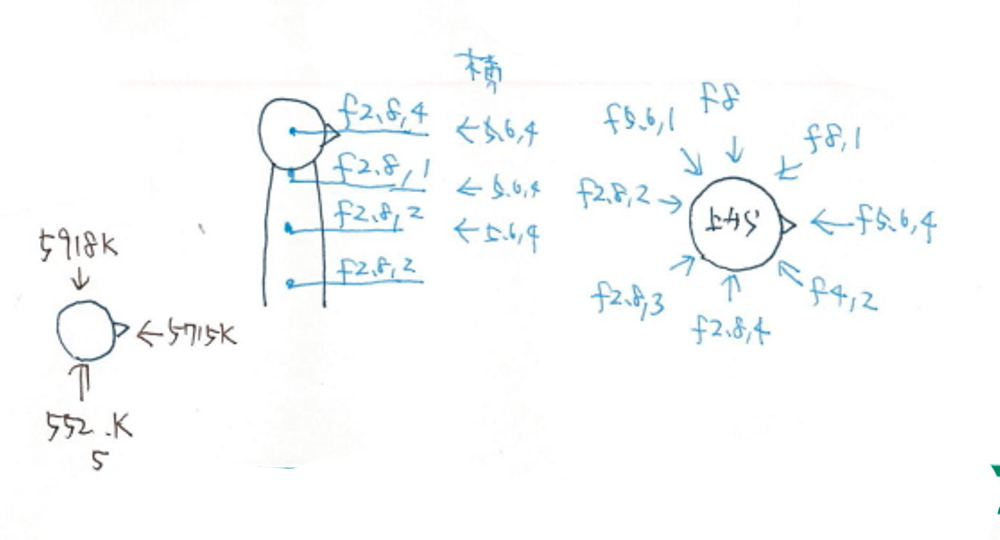 f2.8,4
←5.6,4
f2.8,1
←5.6,4
f2.8,2
←5.6,4
f2.8,2
f8
f5.6,1
f8,1
f2.8,2→
←f5.6,4
f2.8,3
f4,2
f2.8,4
5918K
←5715K
552.K
5